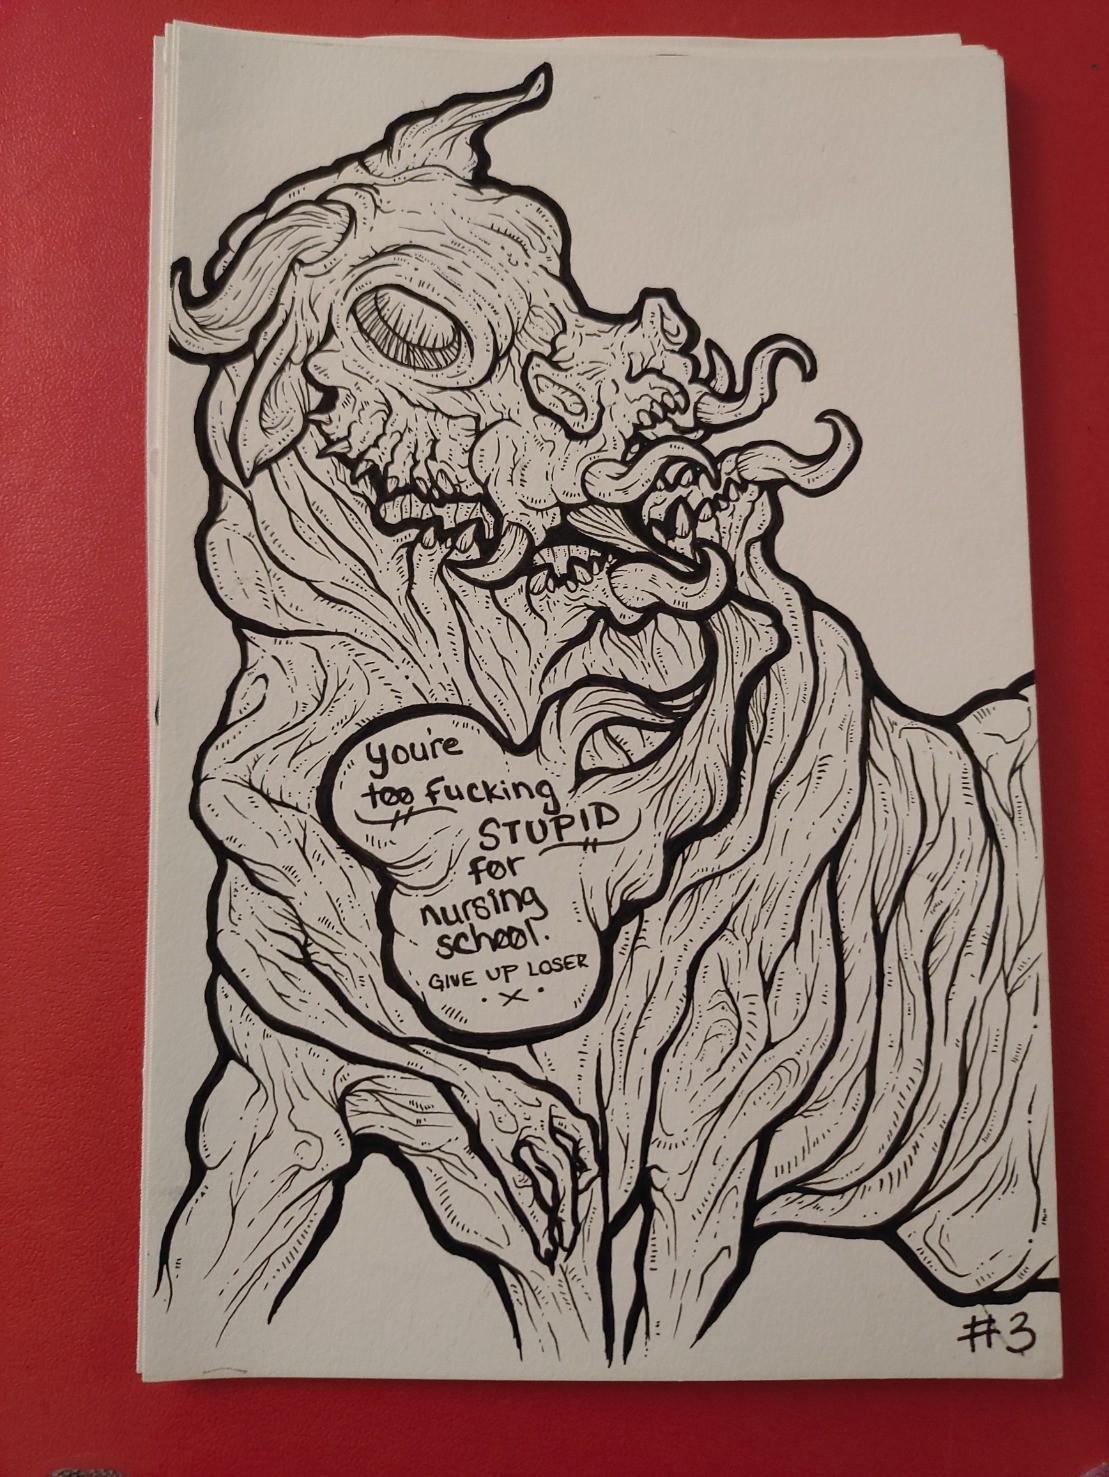 you're
too Fucking
STUPID
for
nursing
school.
GIVE UP LOSER
· X ·
#3